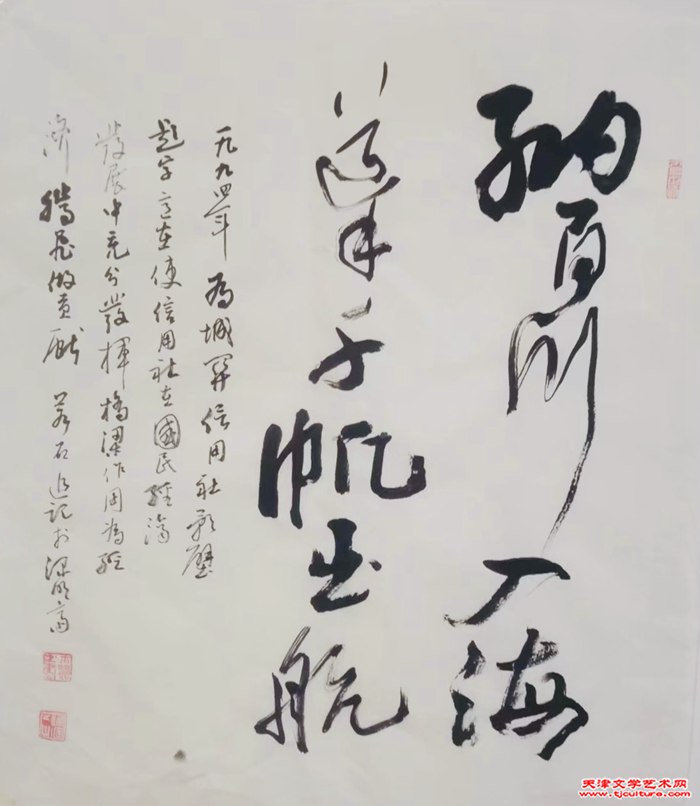 纳百川入海
導千帆出航
一九九四年為城關信用社影壁
題字意在使信用社在國民經濟
發展中充分發揮橋梁作用為經
濟騰飛做貢獻 若石追記於齋
天津文学艺术网
www.tjculture.com